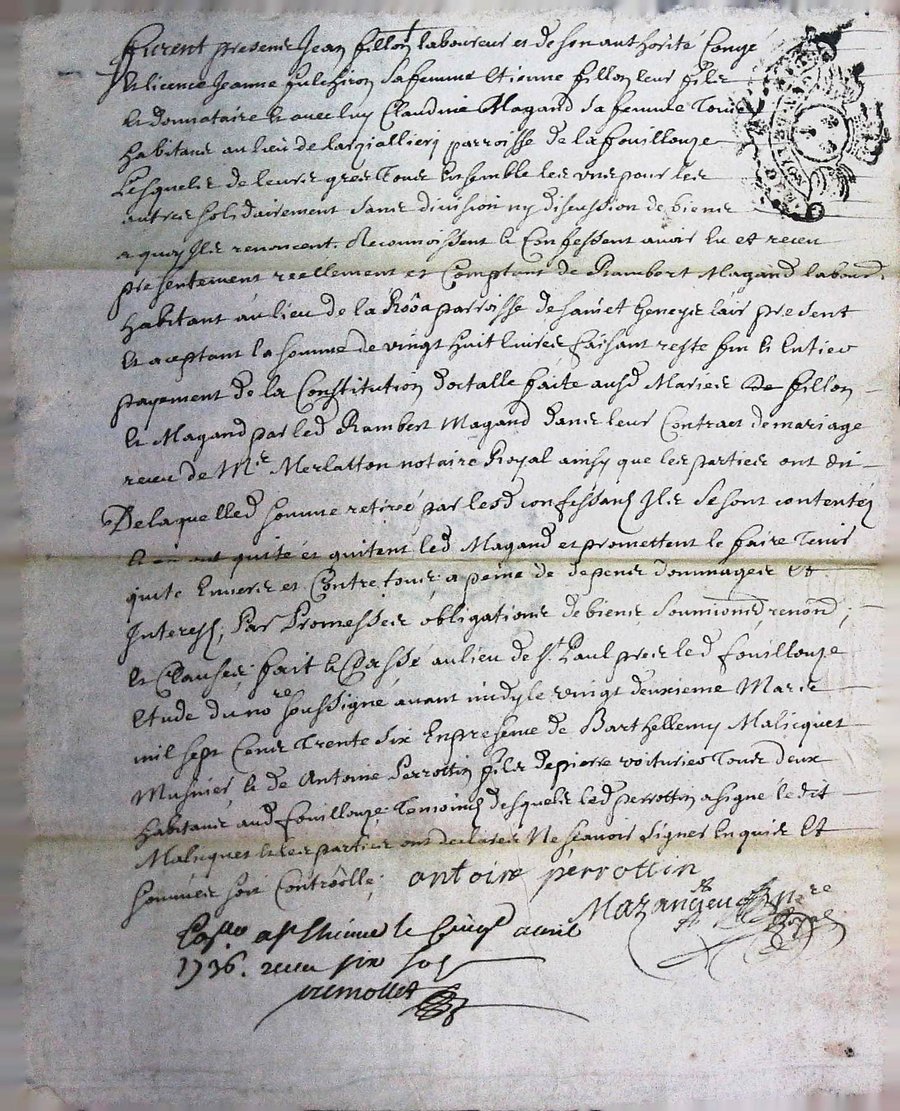 furent presents Jean fillon laboureur et de son authorité Congé
& licence Jeanne fulchiron sa femme Etienne fillon leur fils
& donnataire & avec luy Claudine Magand sa femme Tous
habitans au lieu de parroisse de lafouillouze
Lesquels de leurs grés Tous Ensemble les uns pour les
autres solidairement sans division ny discussion de biens
a quoy Ils renoncent. Reconnoissent & Confessent avoir Eu et receu
presentement reellement et Comptant de Rambert Magand labourr
habitant au lieu de la parroisse de sainct Geneys lair present
& aceptant la somme de vingt huit Livres faisant reste fin & Entier
payement de la Constitution dotalle faite ausd Maries De fillon
& Magand par led Rambert Magand dans leur Contract de mariage
receu de Me Merlatton notaire Royal ainsy que les parties ont dit
De laquelled somme retirée par lesd confessans Ils se sont contentés
& en ont quité et quitent led Magand et promettent le faire Tenir
quite Envers et Contre tous a peine de depens dommages Et
Interests, Par Promesses obligations de biens soumiond, renond,
& Clauses: fait & Passé au lieu de St. Paul pres led fouillouze
Etude du nore soussigné avant midy le vingt deuxieme Mars
mil sept Cens Trente six En presence de Barthellemy Malicquet
Musnier & de Antoine Perrottin fils de pierre voiturier Tous deux
habitans aud fouillouze Temoins desquels led perrottin a signé ledit
Malicquet & les parties ont declaré Ne scavoir signer Enquis Et
sommés soit Contrôollé;
antoine perrottin
Mazandieu Nre
Royal
a St Etienne le avril
1736. receu six sols